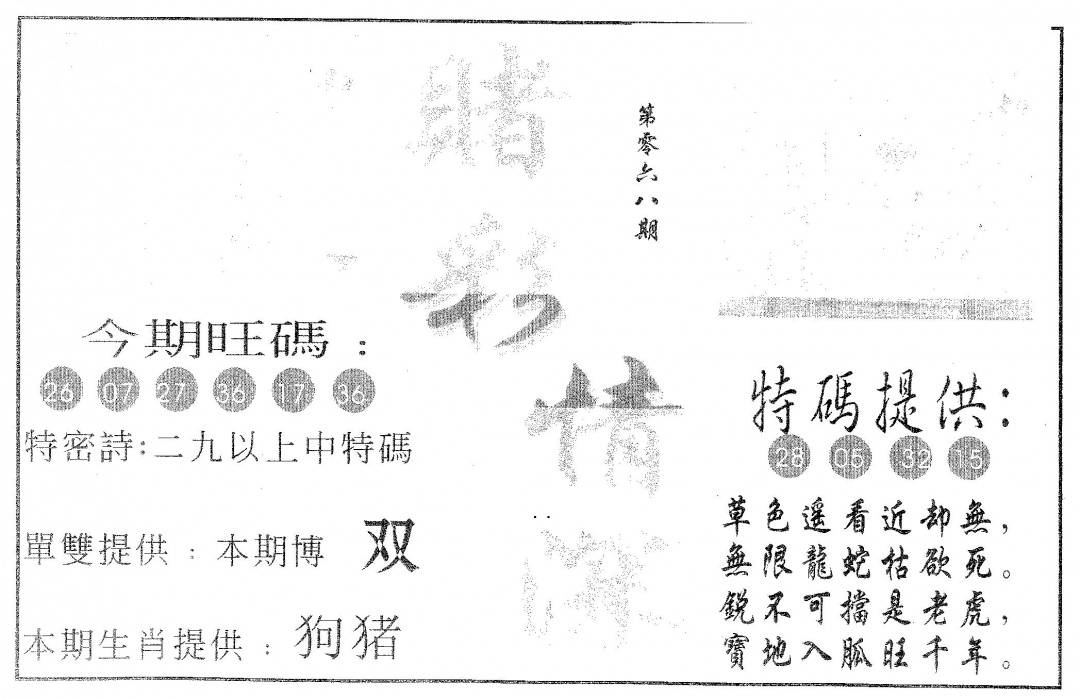 彩情
第零六八期
今期旺碼：
26 07 27 36 17 36
特密詩:二九以上中特碼
單雙提供：本期博 双
本期生肖提供：狗猪
特碼提供:
28 05 32 15
草色遥看近却無，
無限龍蛇枯欲死。
鋭不可擋是老虎，
寶地入胍旺千年。